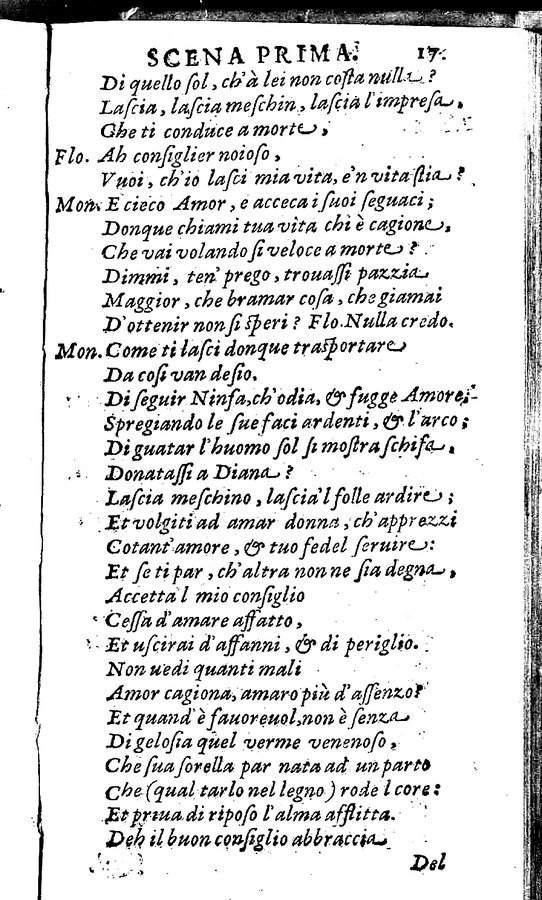 SCENA PRIMA. 17.
Di quello sol, ch'à lei non costa nulla?
Lascia, lascia meschin, lascia l'impresa,
Che ti conduce a morte,
Flo. Ah consiglier noioso,
Vuoi, ch'io lasci mia vita, e'n vita stia?
Mon. E cieco Amor, e acceca i suoi seguaci;
Donque chiami tua vita chi è cagione,
Che vai volando si veloce a morte?
Dimmi, ten' prego, trouassi pazzia
Maggior, che bramar cosa, che giamai
D'ottenir non si speri? Flo. Nulla credo.
Mon. Come ti lasci donque trasportare
Da cosi van desio.
Di seguir Ninfa, ch'odia, & fugge Amore,
Spregiando le sue faci ardenti, & l'arco;
Di guatar l'huomo sol si mostra schifa,
Donatassi a Diana?
Lascia meschino, lascia'l folle ardire;
Et volgiti ad amar donna, ch'apprezzi
Cotant'amore, & tuo fedel seruire:
Et se ti par, ch'altra non ne sia degna,
Accetta l mio consiglio
Cessa d'amare affatto,
Et uscirai d'affanni, & di periglio.
Non uedi quanti mali
Amor cagiona, amaro più d'assenzo?
Et quand'è fauoreuol, non è senza
Di gelosia quel verme venenoso,
Che sua sorella par nata ad un parto
Che (qual tarlo nel legno) rode l core:
Et priua di riposo l'alma afflitta.
Deh il buon consiglio abbraccia
Del